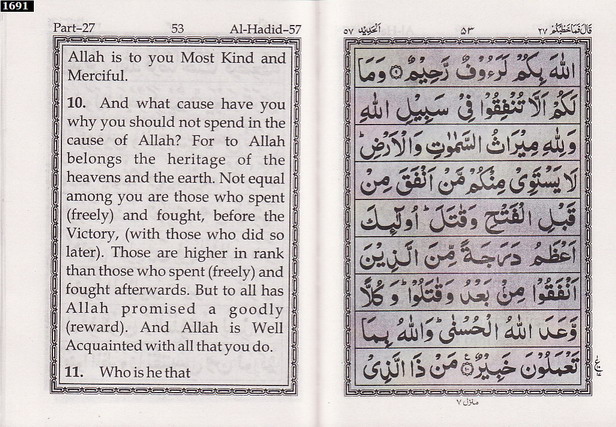 1691
Part–27 53 Al-Hadid–57
Allah is to you Most Kind and
Merciful.
10. And what cause have you
why you should not spend in the
cause of Allah? For to Allah
belongs the heritage of the
heavens and the earth. Not equal
among you are those who spent
(freely) and fought, before the
Victory, (with those who did so
later). Those are higher in rank
than those who spent (freely) and
fought afterwards. But to all has
Allah promised a goodly
(reward). And Allah is Well
Acquainted with all that you do.
11. Who is he that
قَالَ فَمَا خَطْبُكُمْ ٢٧ ٥٣ اَلْحَدِيْد ٥٧
اللّٰهَ بِكُمْ لَرَءُوْفٌ رَّحِيْمٌ ۝ وَمَا
لَكُمْ اَلَّا تُنْفِقُوْا فِيْ سَبِيْلِ اللّٰهِ
وَلِلّٰهِ مِيْرَاثُ السَّمٰوٰتِ وَالْاَرْضِ ؕ
لَا يَسْتَوِىْ مِنْكُمْ مَّنْ اَنْفَقَ مِنْ
قَبْلِ الْفَتْحِ وَقٰتَلَ ؕ اُولٰٓئِكَ
اَعْظَمُ دَرَجَةً مِّنَ الَّذِيْنَ
اَنْفَقُوْا مِنْۢ بَعْدُ وَقٰتَلُوْا ؕ وَكُلًّا
وَّعَدَ اللّٰهُ الْحُسْنٰى ؕ وَاللّٰهُ بِمَا
تَعْمَلُوْنَ خَبِيْرٌ ۝ مَنْ ذَا الَّذِىْ